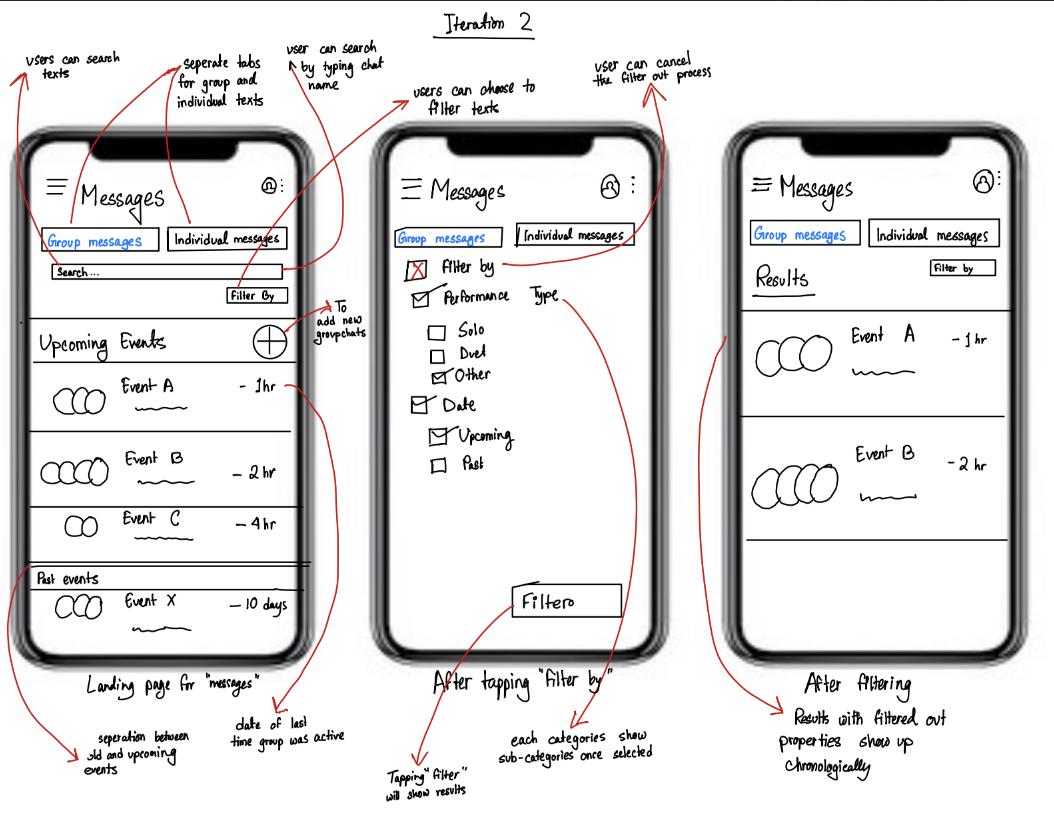 Iteration 2
users can search
texts
seperate tabs
for group and
individual texts
user can search
by typing chat
name
users can choose to
filter texts
user can cancel
the filter out process
Messages
Group messages
Individual messages
Search...
Filter By
To
add new
groupchats
Upcoming Events
Event A
- 1hr
Event B
- 2 hr
Event C
- 4 hr
Past events
Event X
- 10 days
Landing page for "messages"
seperation between
old and upcoming
events
date of last
time group was active
Messages
Group messages
Individual messages
X Filter by
Performance Type
Solo
Duet
Other
Date
Upcoming
Past
Filter
After tapping "filter by"
Tapping "filter"
will show results
each categories show
sub-categories once selected
Messages
Group messages
Individual messages
Filter by
Results
Event A
- 1 hr
Event B
- 2 hr
After filtering
Results with filtered out
properties show up
chronologically